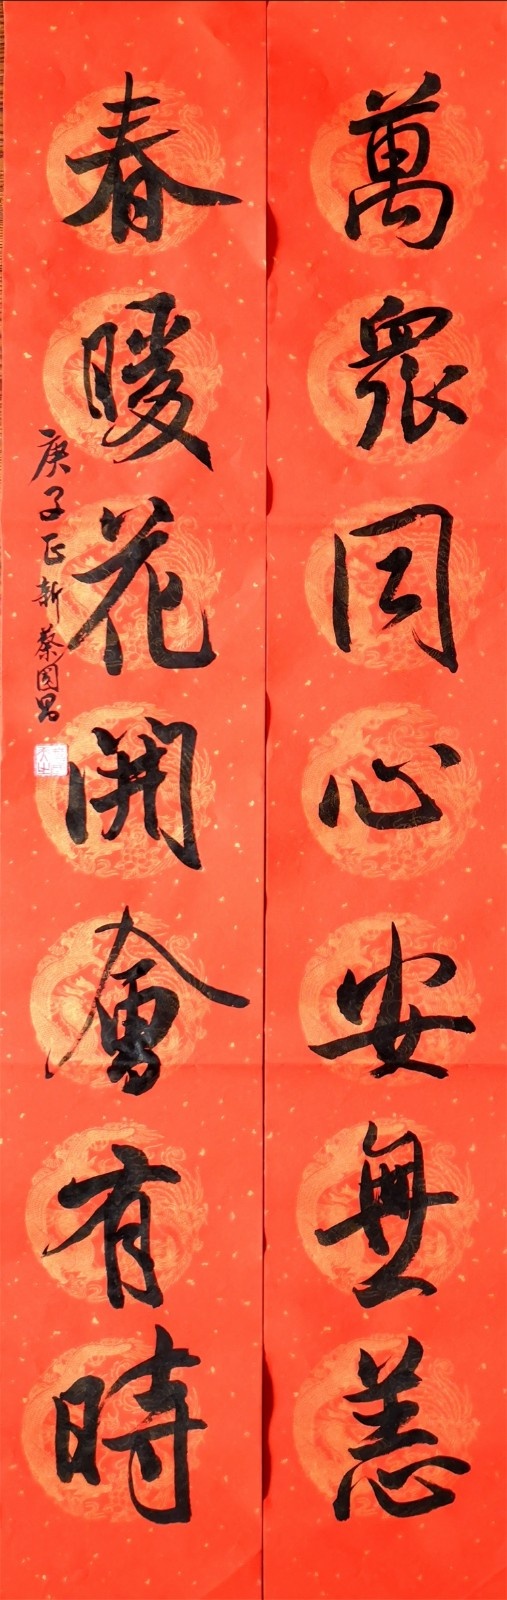 萬眾同心安無恙
春暖花開會有時
庚子正新蔡國昌